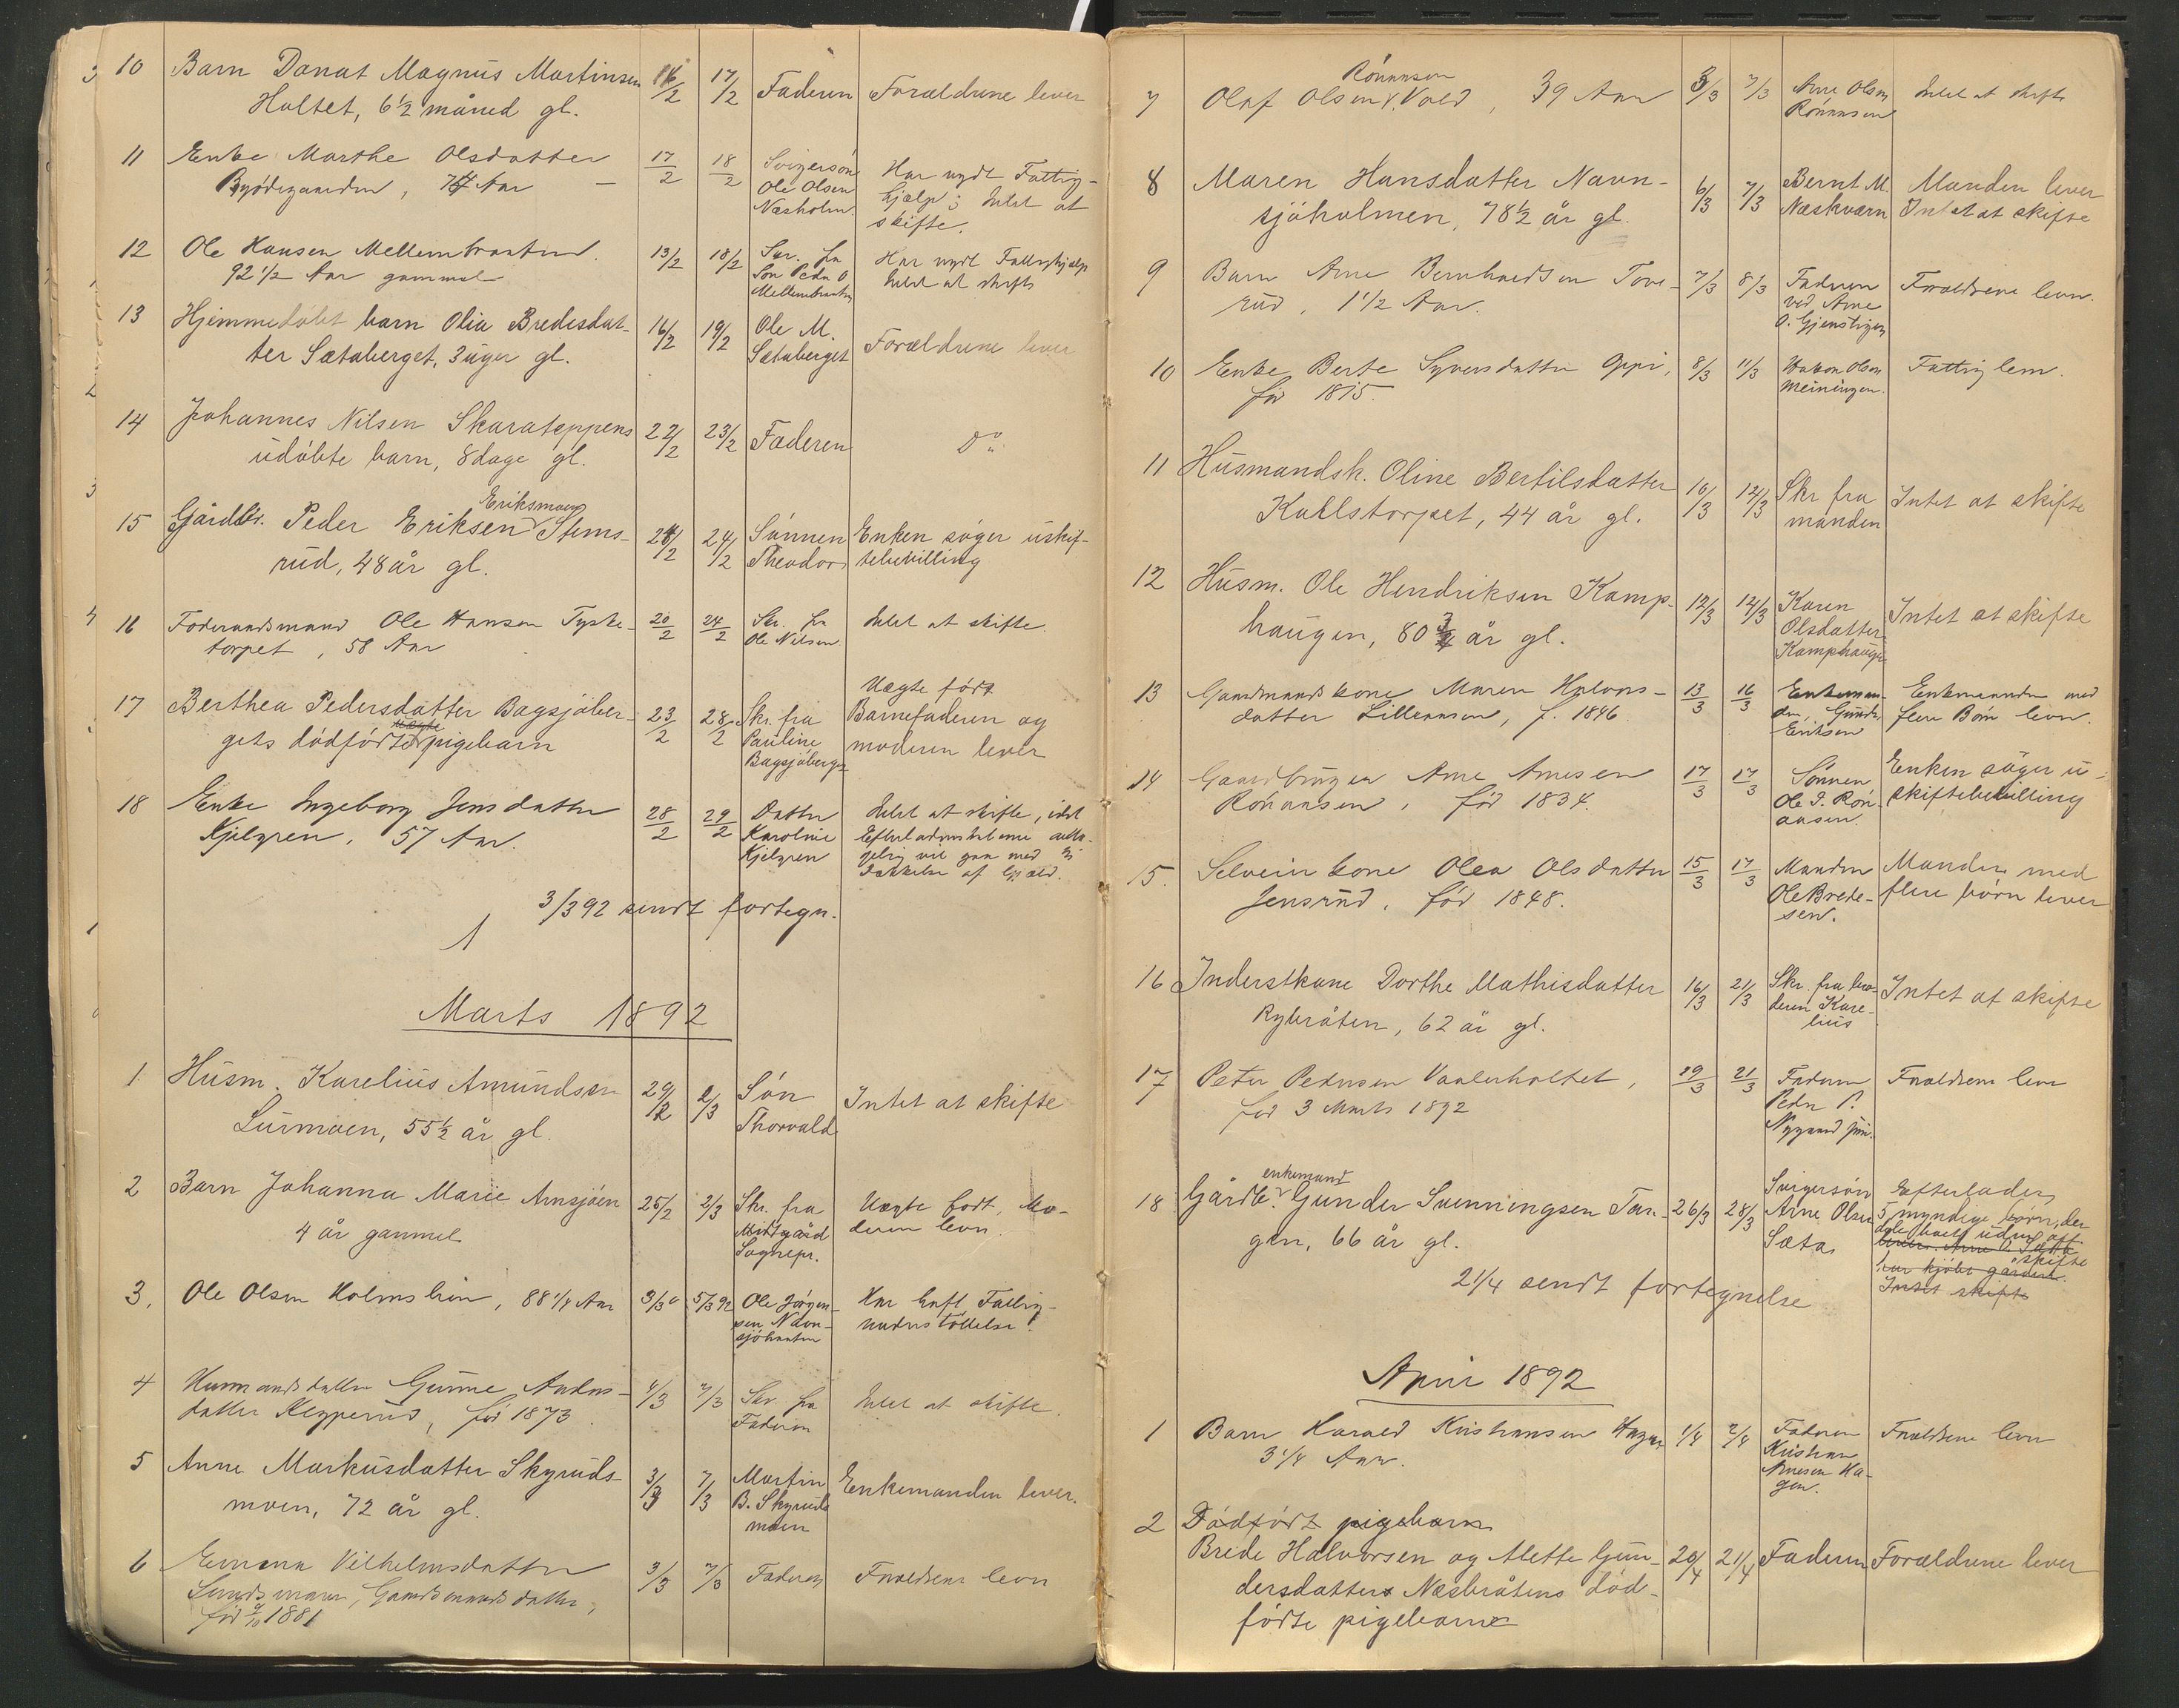 10 Barn Danat Magnus Martinsen 16/2 17/2 Faderen Forældrene lever
Holtet, 6½ måned gl.
11 Enke Marthe Olsdatter 17/2 18/2 Svigersøn Har nydt Fattig-
Aar – Ole Olsen hjælp; Intet at
Næsholen. skifte.
12 Ole Hansen Mellembraaten. 13/2 18/2 Skr. fra Har nydt Fattighjælp
92 1/2 Aar gammel Søn Peder O Intet at skifte
Mellembraaten
13 Hjemmedøbt barn Olia Bredesdat- 16/2 19/2 Ole M.
ter Sætaberget, 3 uger gl. Sætaberget Forældrene lever
14 Johannes Nilsen Skarateppens 22/2 23/2 Faderen Do
udøbte barn, 8 dage gl.
Eriksmoen
15 Gårdbr. Peder Eriksen Stems- 24/2 24/2 Sønnen Enken søger uskif-
rud, 48 år gl. Theodor tebevilling
16 Føderaadsmand Ole Hansen Tyske- 20/2 24/2 Skr. fra Intet at skifte.
torpet, 58 Aar Ole Nilsen
Uægte født
17 Berthea Pedersdatter Bagsjøber- 23/2 28/2 Skr. fra Barnefaderen og
gets dødfødte uægte pigebarn Pauline moderen lever
Bagsjøberget
18 Enke Ingeborg Jensdatter 28/2 29/2 Datter Intet at skifte, idet
Kjelgren, 57 Aar. Karoline
Kjelgren Dækkelse af Gjæld.
3/3 92 sendt fortegn.
Marts 1892
1 Husm. Karelius Amundsen 29/2 2/3 Søn Intet at skifte
Lurmoen, 55½ år gl. Thorvald
2 Barn Johanna Marie Arnsjøen 25/2 2/3 Skr. fra Uægte født, Mo-
4 år gammel Midtgård deren lever.
Sognepr.
3. Ole Olsen Holmslien, 88 1/4 Aar 5/3 92 Ole Jørgen- Har havt Fattig-
sen Navn- understøttelse.
sjøbraaten
4 Husmandsdatter Gunne Anders- 1/3 7/3 Skr. fra Intet at skifte.
datter Klypperud, fød 1873. Faderen
5 Anne Markusdatter Skyruds- 3/3 7/3 Martin Enkemanden lever.
moen, 72 år gl. B. Skyruds
moen
6 Emma Vilhelmsdatter 3/3 7/3 Faderen Forældrene lever
Gaardmandsdatter,
fød 1881
Rönaasen
7 Olaf Olsen v. Vold, 39 Aar 3/3 7/3 Arne Olsen Intet at skifte
Rönaasen
8 Maren Hansdatter Navn- 6/3 7/3 Bernt M. Manden lever
sjøholmen, 78½ år gl. Næskværn Intet at skifte
9 Barn Arne Bernhardsen Tove- 7/3 8/3 Faderen Forældrene lever.
rud, 1 1/2 Aar. ved Arne
O. Gjenstigen
10 Enke Berte Syversdatter Oppi, 8/3 11/3 Haakon Olsen Fattiglem.
fød 1815. Meiningen.
11 Husmandsk. Oline Bertilsdatter 10/3 12/3 Skr fra Intet at skifte
Kallstorpet, 44 år gl. manden
12 Husm. Ole Hendriksen Kamp- 12/3 12/3 Karen Intet at skifte
haugen, 80¾ år gl. Olsdatter
Kamphaugen
13 Gaardmandskone Maren Halvors- 13/3 16/3 Enkeman- Enkemanden med
datter Lilleaasen, f. 1846. den Gunder flere Børn lever.
Eriksen
14 Gaardbruger Arne Arnesen 17/3 17/3 Sønnen Enken søger u-
Rönaasen, fød 1834. Ole I. Rön- skiftebevilling
aasen.
15. Selveierkone Olea Olsdatter 15/3 17/3 Manden Manden med
Jensrud, fød 1848. Ole Brede- flere børn lever
sen.
16 Inderstkone Dorthe Mathisdatter 16/3 21/3 Skr. fra bro- Intet at skifte
Rybråten, 62 år gl. deren Kare-
lius
17 Peter Pedersen Vaalerholtet, 19/3 21/3 Faderen Forældrene lever
fød 3 Marts 1892 Peder P.
Nygaard jun.
enkemand
18 Gårdbr. Gunder Svenningsen Tan- 26/3 28/3 Svigersøn Efterlader
gen, 66 år gl. Arne Olsen 5 myndige børn, der
Sæta
har kjøbt gården.
Intet skifte
21/4 sendt fortegnelse
April 1892
1 Barn Harald Kristiansen Hagen 1/4 2/4 Faderen Forældrene lever
3 1/4 Aar. Kristian
Arnesen Ha-
gen.
2 Dødfødt pigebarn
Brede Halvorsen og Mette Gun- 20/4 21/4 Faderen Forældrene lever
dersdatter Næsbråtens død-
fødte pigebarn